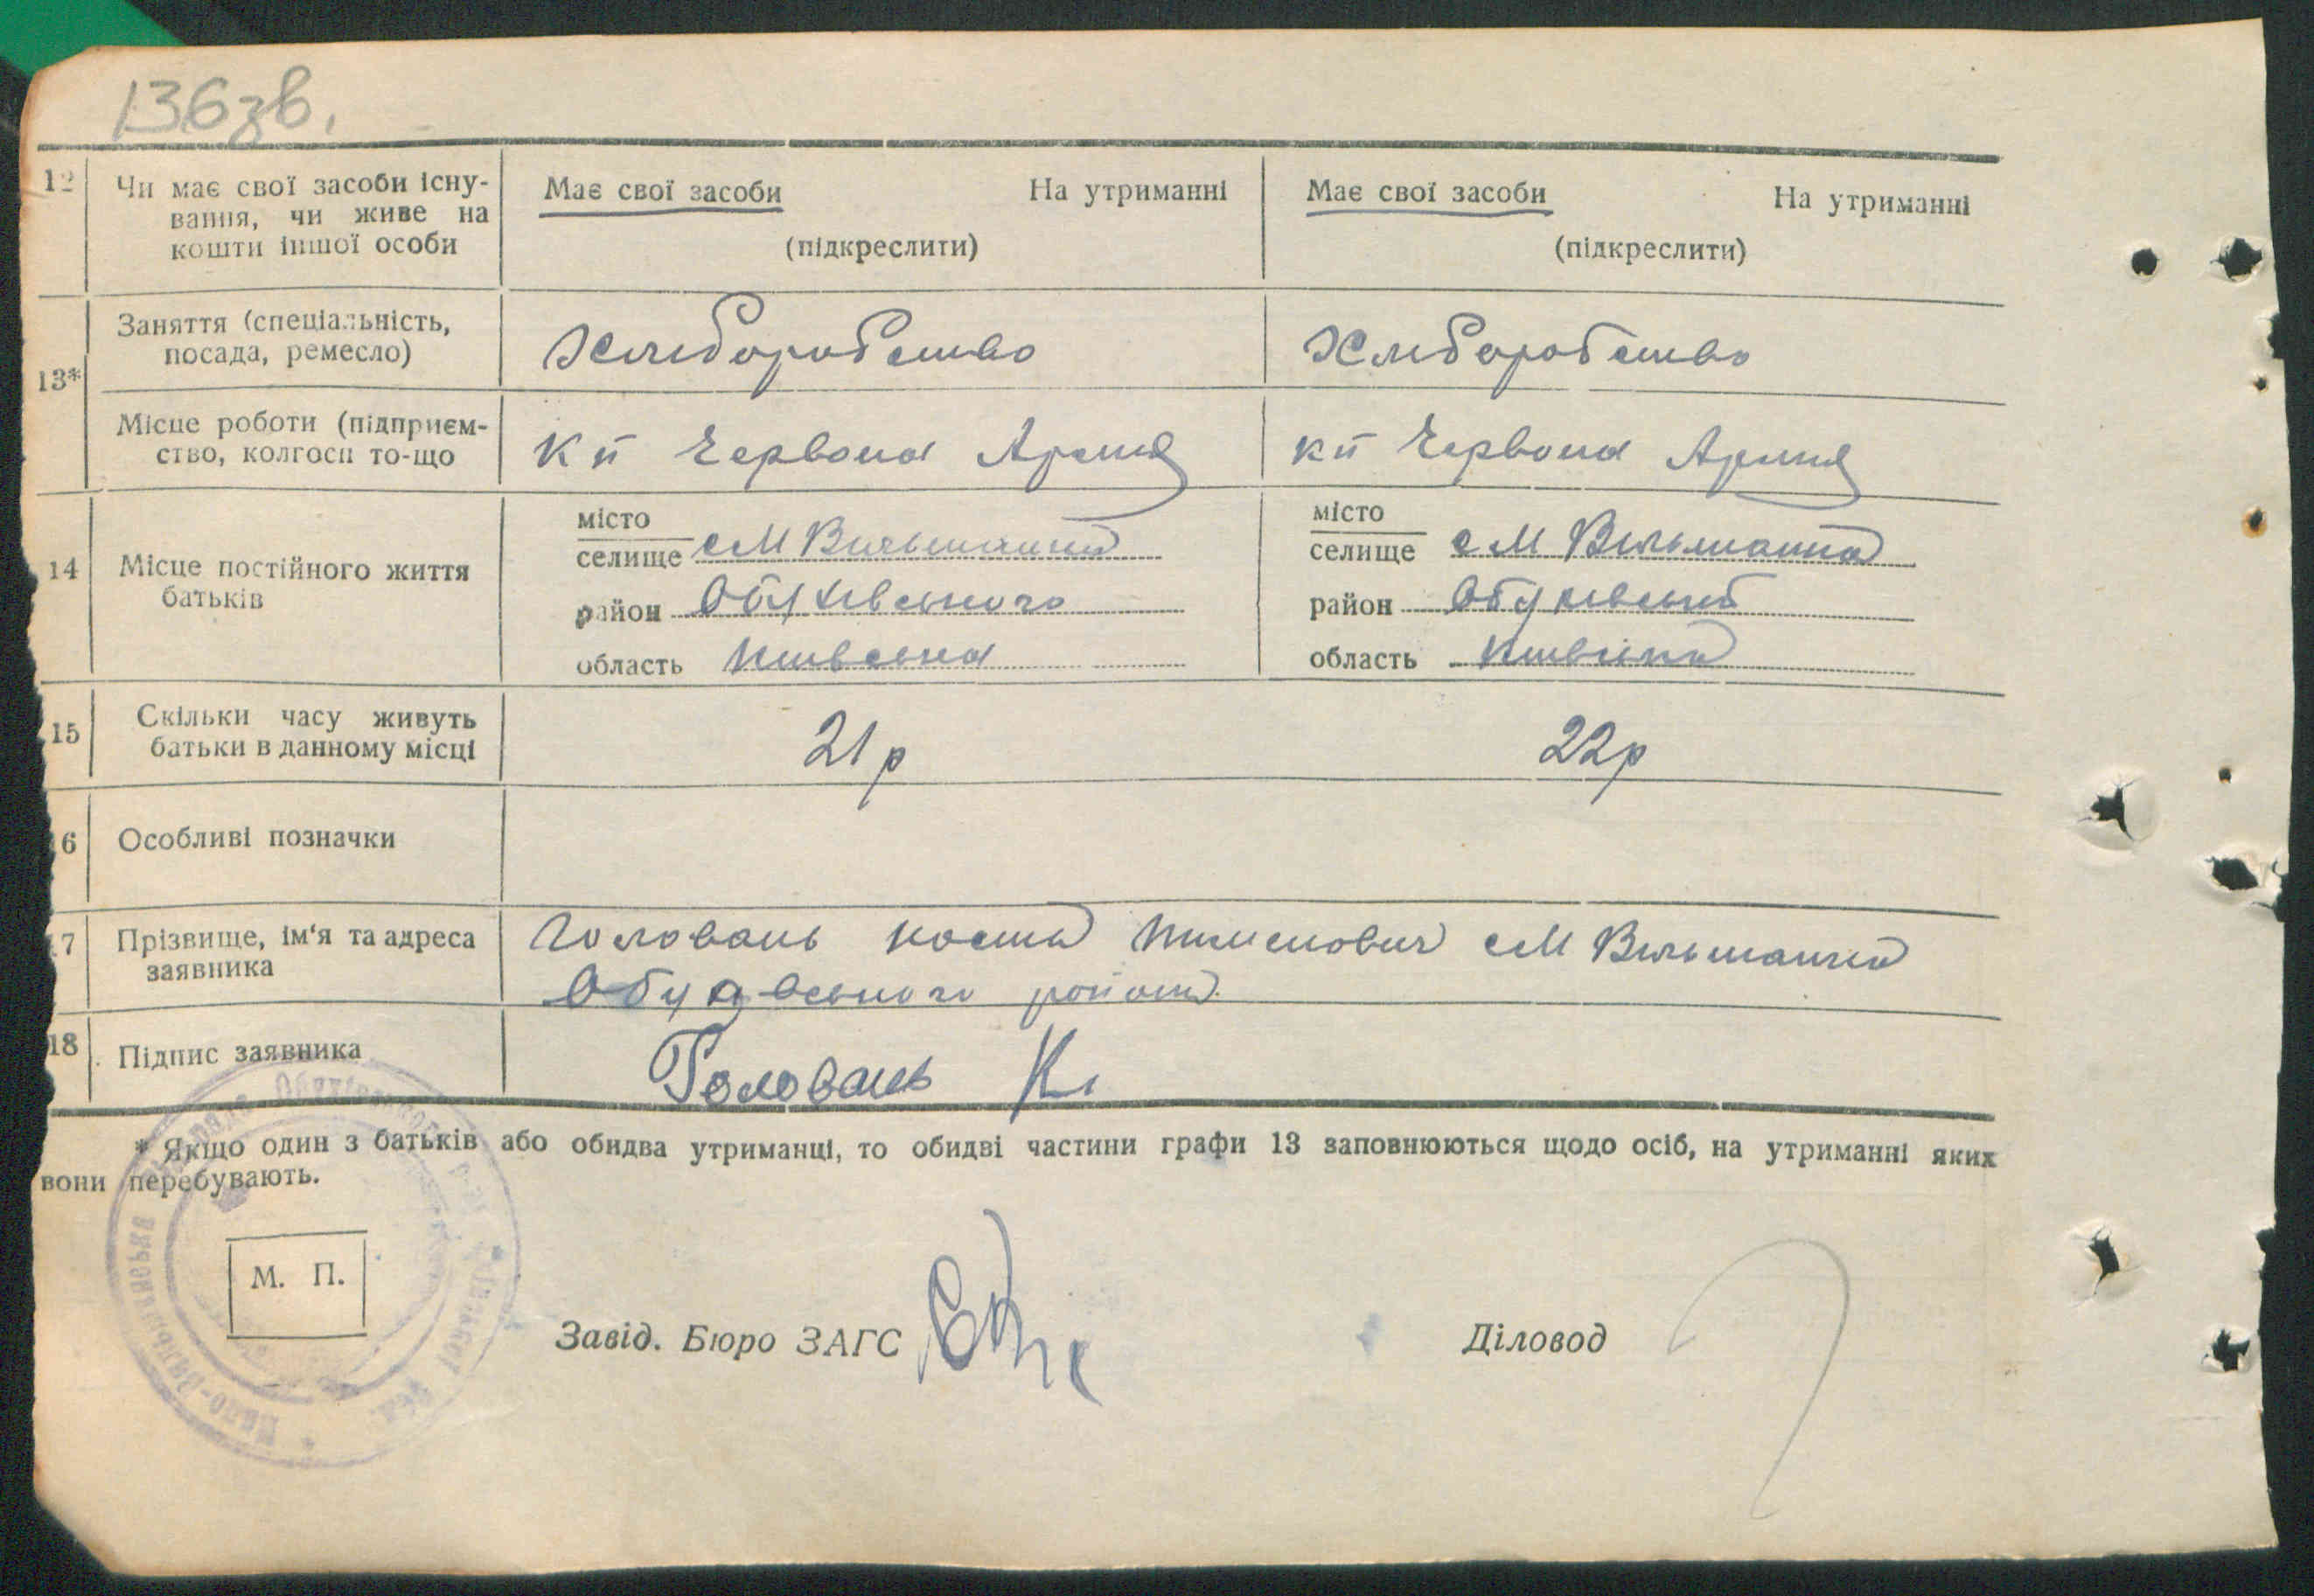 136зв.
12 Чи має свої засоби існу- Має свої засоби На утриманні Має свої засоби На утриманні
вання, чи живе на
кошти іншої особи (підкреслити) (підкреслити)
13* Заняття (спеціальність,
посада, ремесло) Хлиборобство Хлиборобство
Місце роботи (підприєм-
ство, колгосп то-що Кп Червона Армия кп Червона Армия
14 Місце постійного життя
батьків
місто
селище с М Вильшанка
район Обухивського
область Киивська
місто
селище с М Вильшанка
район Обухивський
область Киивська
15 Скільки часу живуть
батьки в данному місці 21р 22р
6 Особливі позначки
17 Прізвище, ім'я та адреса
заявника
Головань Пименович с М Вильшанка
Обухивського района
18 Підпис заявника Головань К.
* Якщо один з батьків або обидва утриманці, то обидві частини графи 13 заповнюються щодо осіб, на утриманні яких
вони перебувають.
М. П.
Завід. Бюро ЗАГС
Діловод